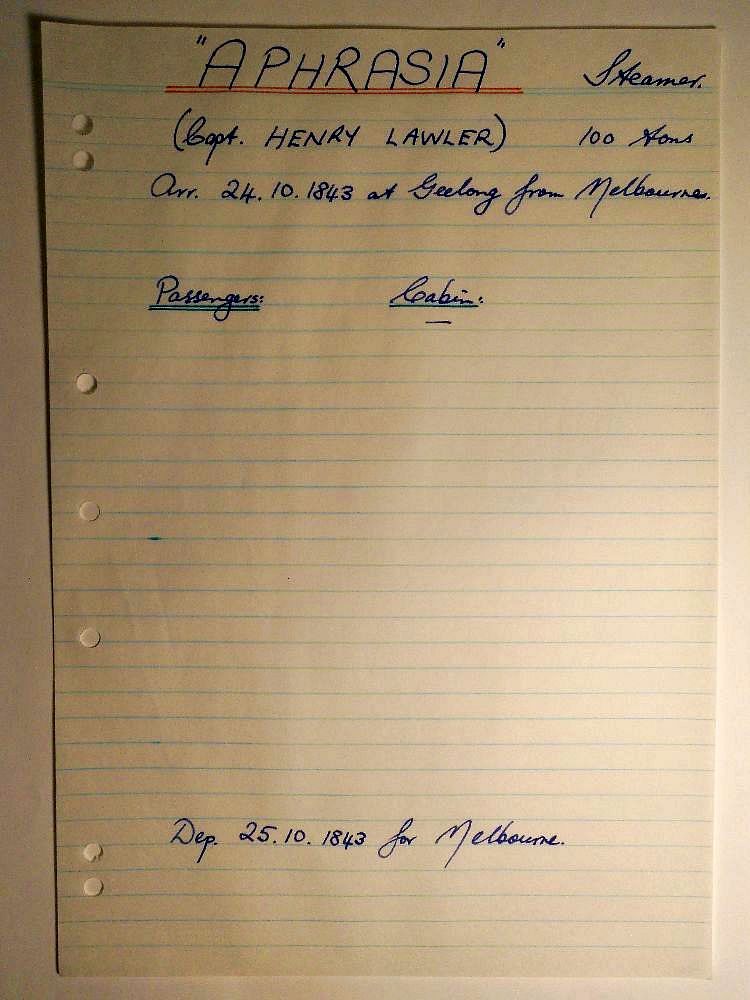 "APHRASIA" Steamer.
(Capt. HENRY LAWLER) 100 tons
Arr. 24.10.1843 at Geelong from Melbourne.
Passengers: Cabin:
—
Dep. 25.10.1843 for Melbourne.